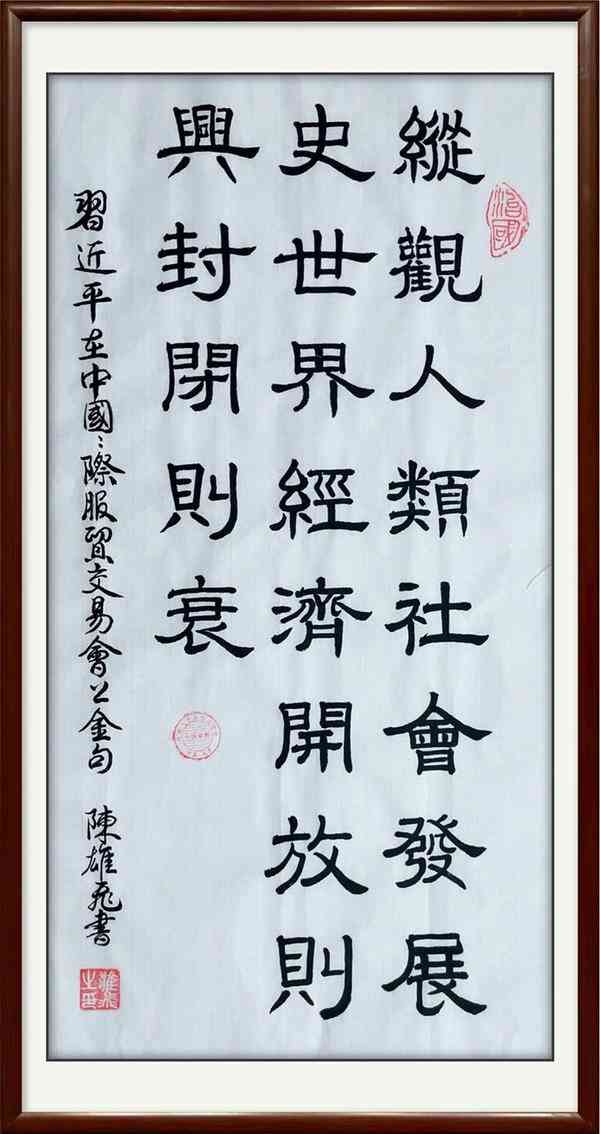 縱觀人類社會發展
史世界經濟開放則
興封閉則衰
習近平在中國〻際服貿交易會上金句
陳雄飛書
治國